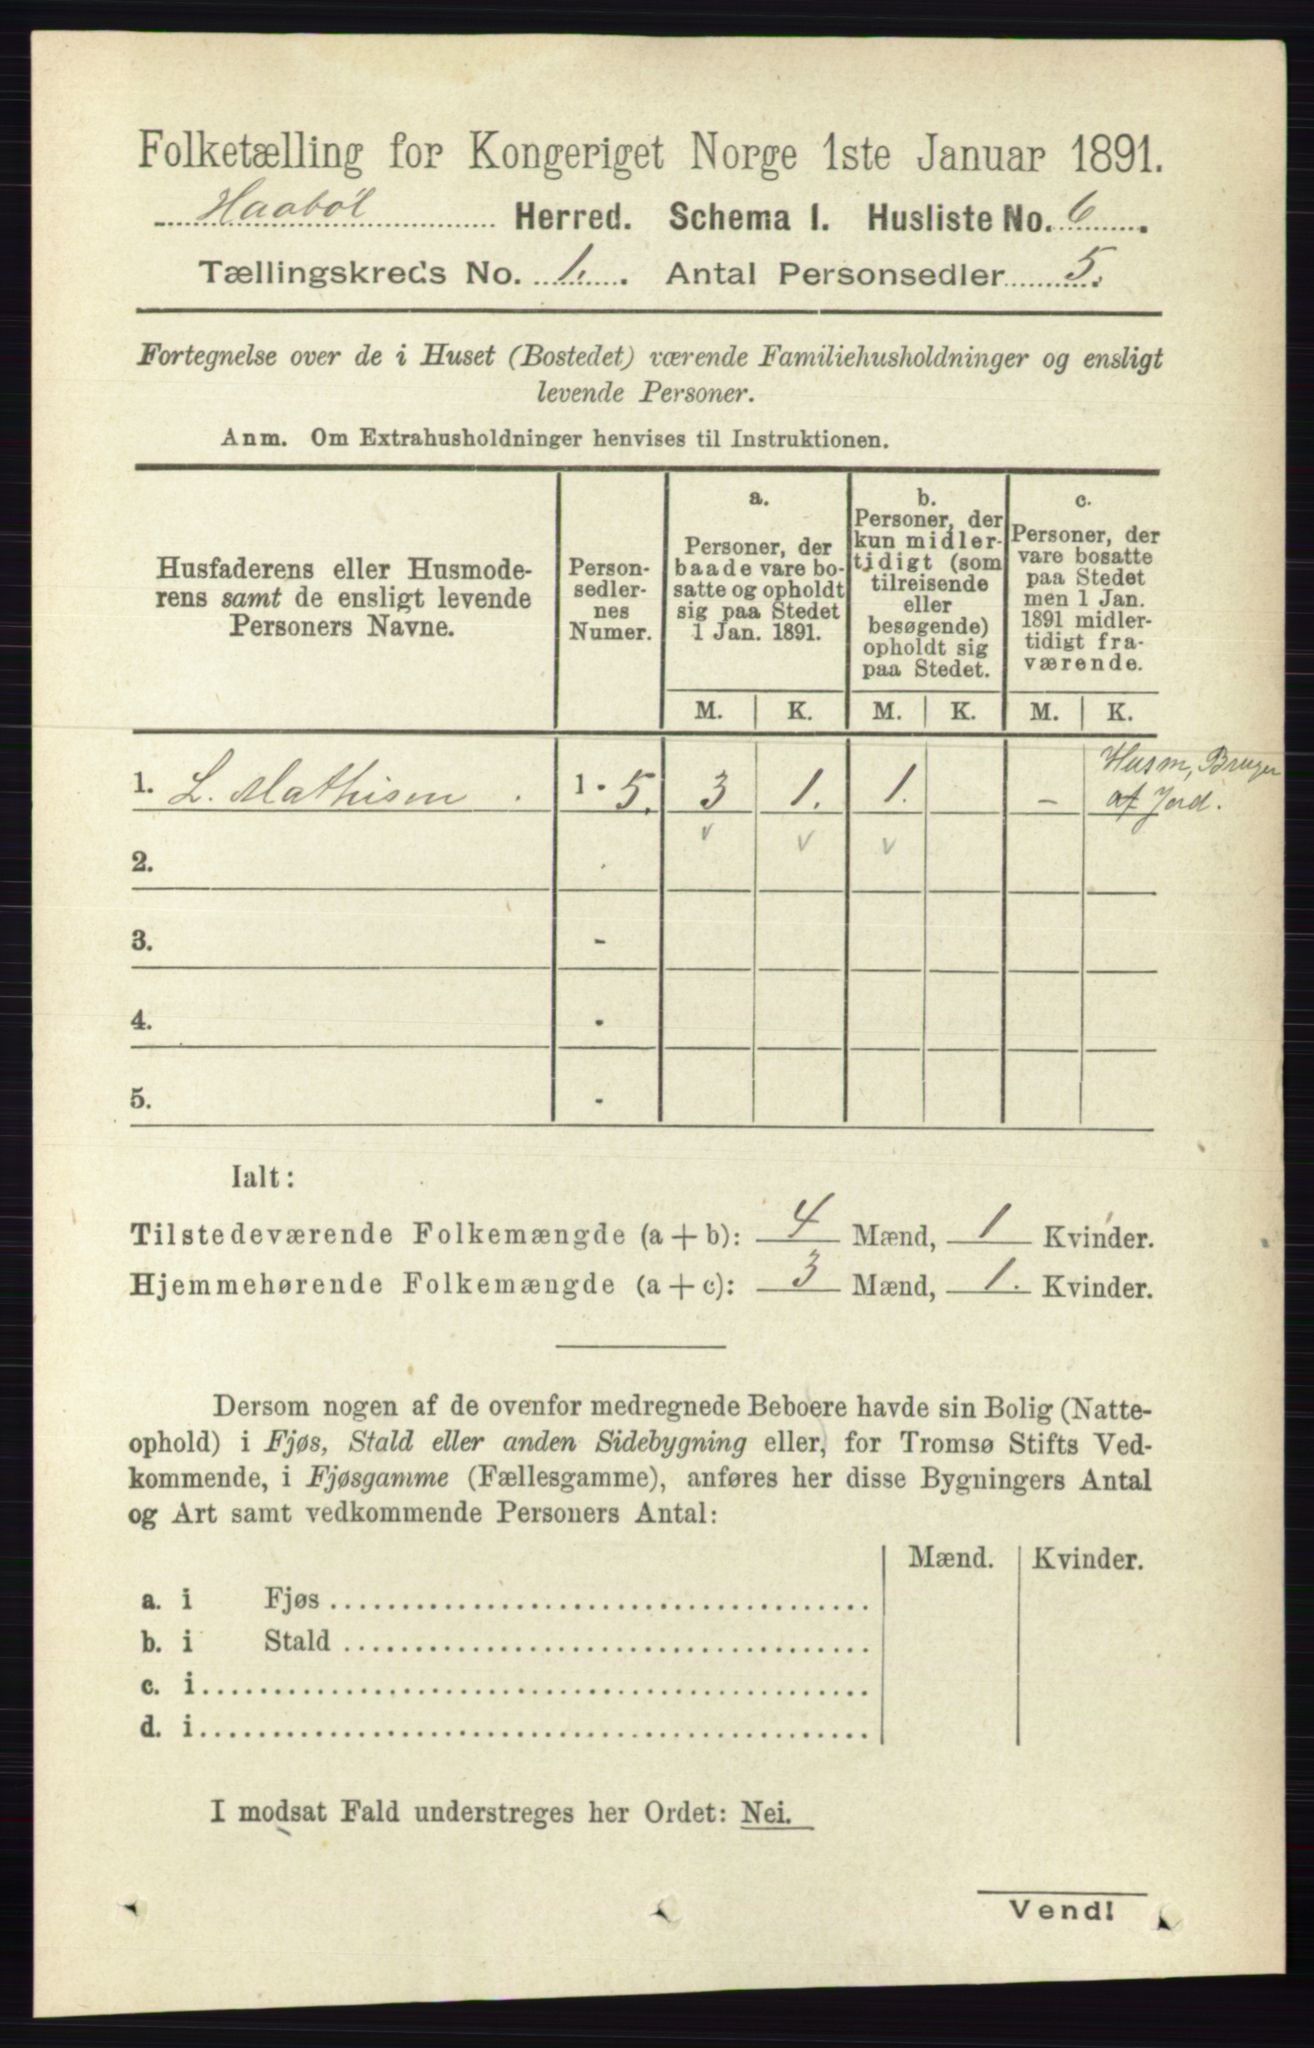 Folketælling for Kongeriget Norge 1ste Januar 1891.
Haabøl Herred. Schema I. Husliste No. 6.
Tællingskreds No. 1. Antal Personsedler 5.
Fortegnelse over de i Huset (Bostedet) værende Familiehusholdninger og ensligt
levende Personer.
Anm. Om Extrahusholdninger henvises til Instruktionen.
Husfaderens eller Husmode-
rens samt de ensligt levende
Personers Navne.
Person-
sedler-
nes
Numer.
a.
Personer, der
baade vare bo-
satte og opholdt
sig paa Stedet
1 Jan. 1891.
b.
Personer, der
kun midler-
tidigt (som
tilreisende
eller
besøgende)
opholdt sig
paa Stedet.
c.
Personer, der
vare bosatte
paa Stedet
men 1 Jan.
1891 midler-
tidigt fra-
værende.
M. K. M. K. M. K.
Husm, Bruger
af Jord.
1. L. Mathisen 1 - 5. 3 1. 1. -
v v v
2.
3. -
4. -
5. -
Ialt:
Tilstedeværende Folkemængde (a + b): 4 Mænd, 1 Kvinder.
Hjemmehørende Folkemængde (a + c): 3 Mænd, 1. Kvinder.
Dersom nogen af de ovenfor medregnede Beboere havde sin Bolig (Natte-
ophold) i Fjøs, Stald eller anden Sidebygning eller, for Tromsø Stifts Ved-
kommende, i Fjøsgamme (Fællesgamme), anføres her disse Bygningers Antal
og Art samt vedkommende Personers Antal:
Mænd. Kvinder.
a. i Fjøs
b. i Stald
c. i
d. i
I modsat Fald understreges her Ordet: Nei.
Vend!